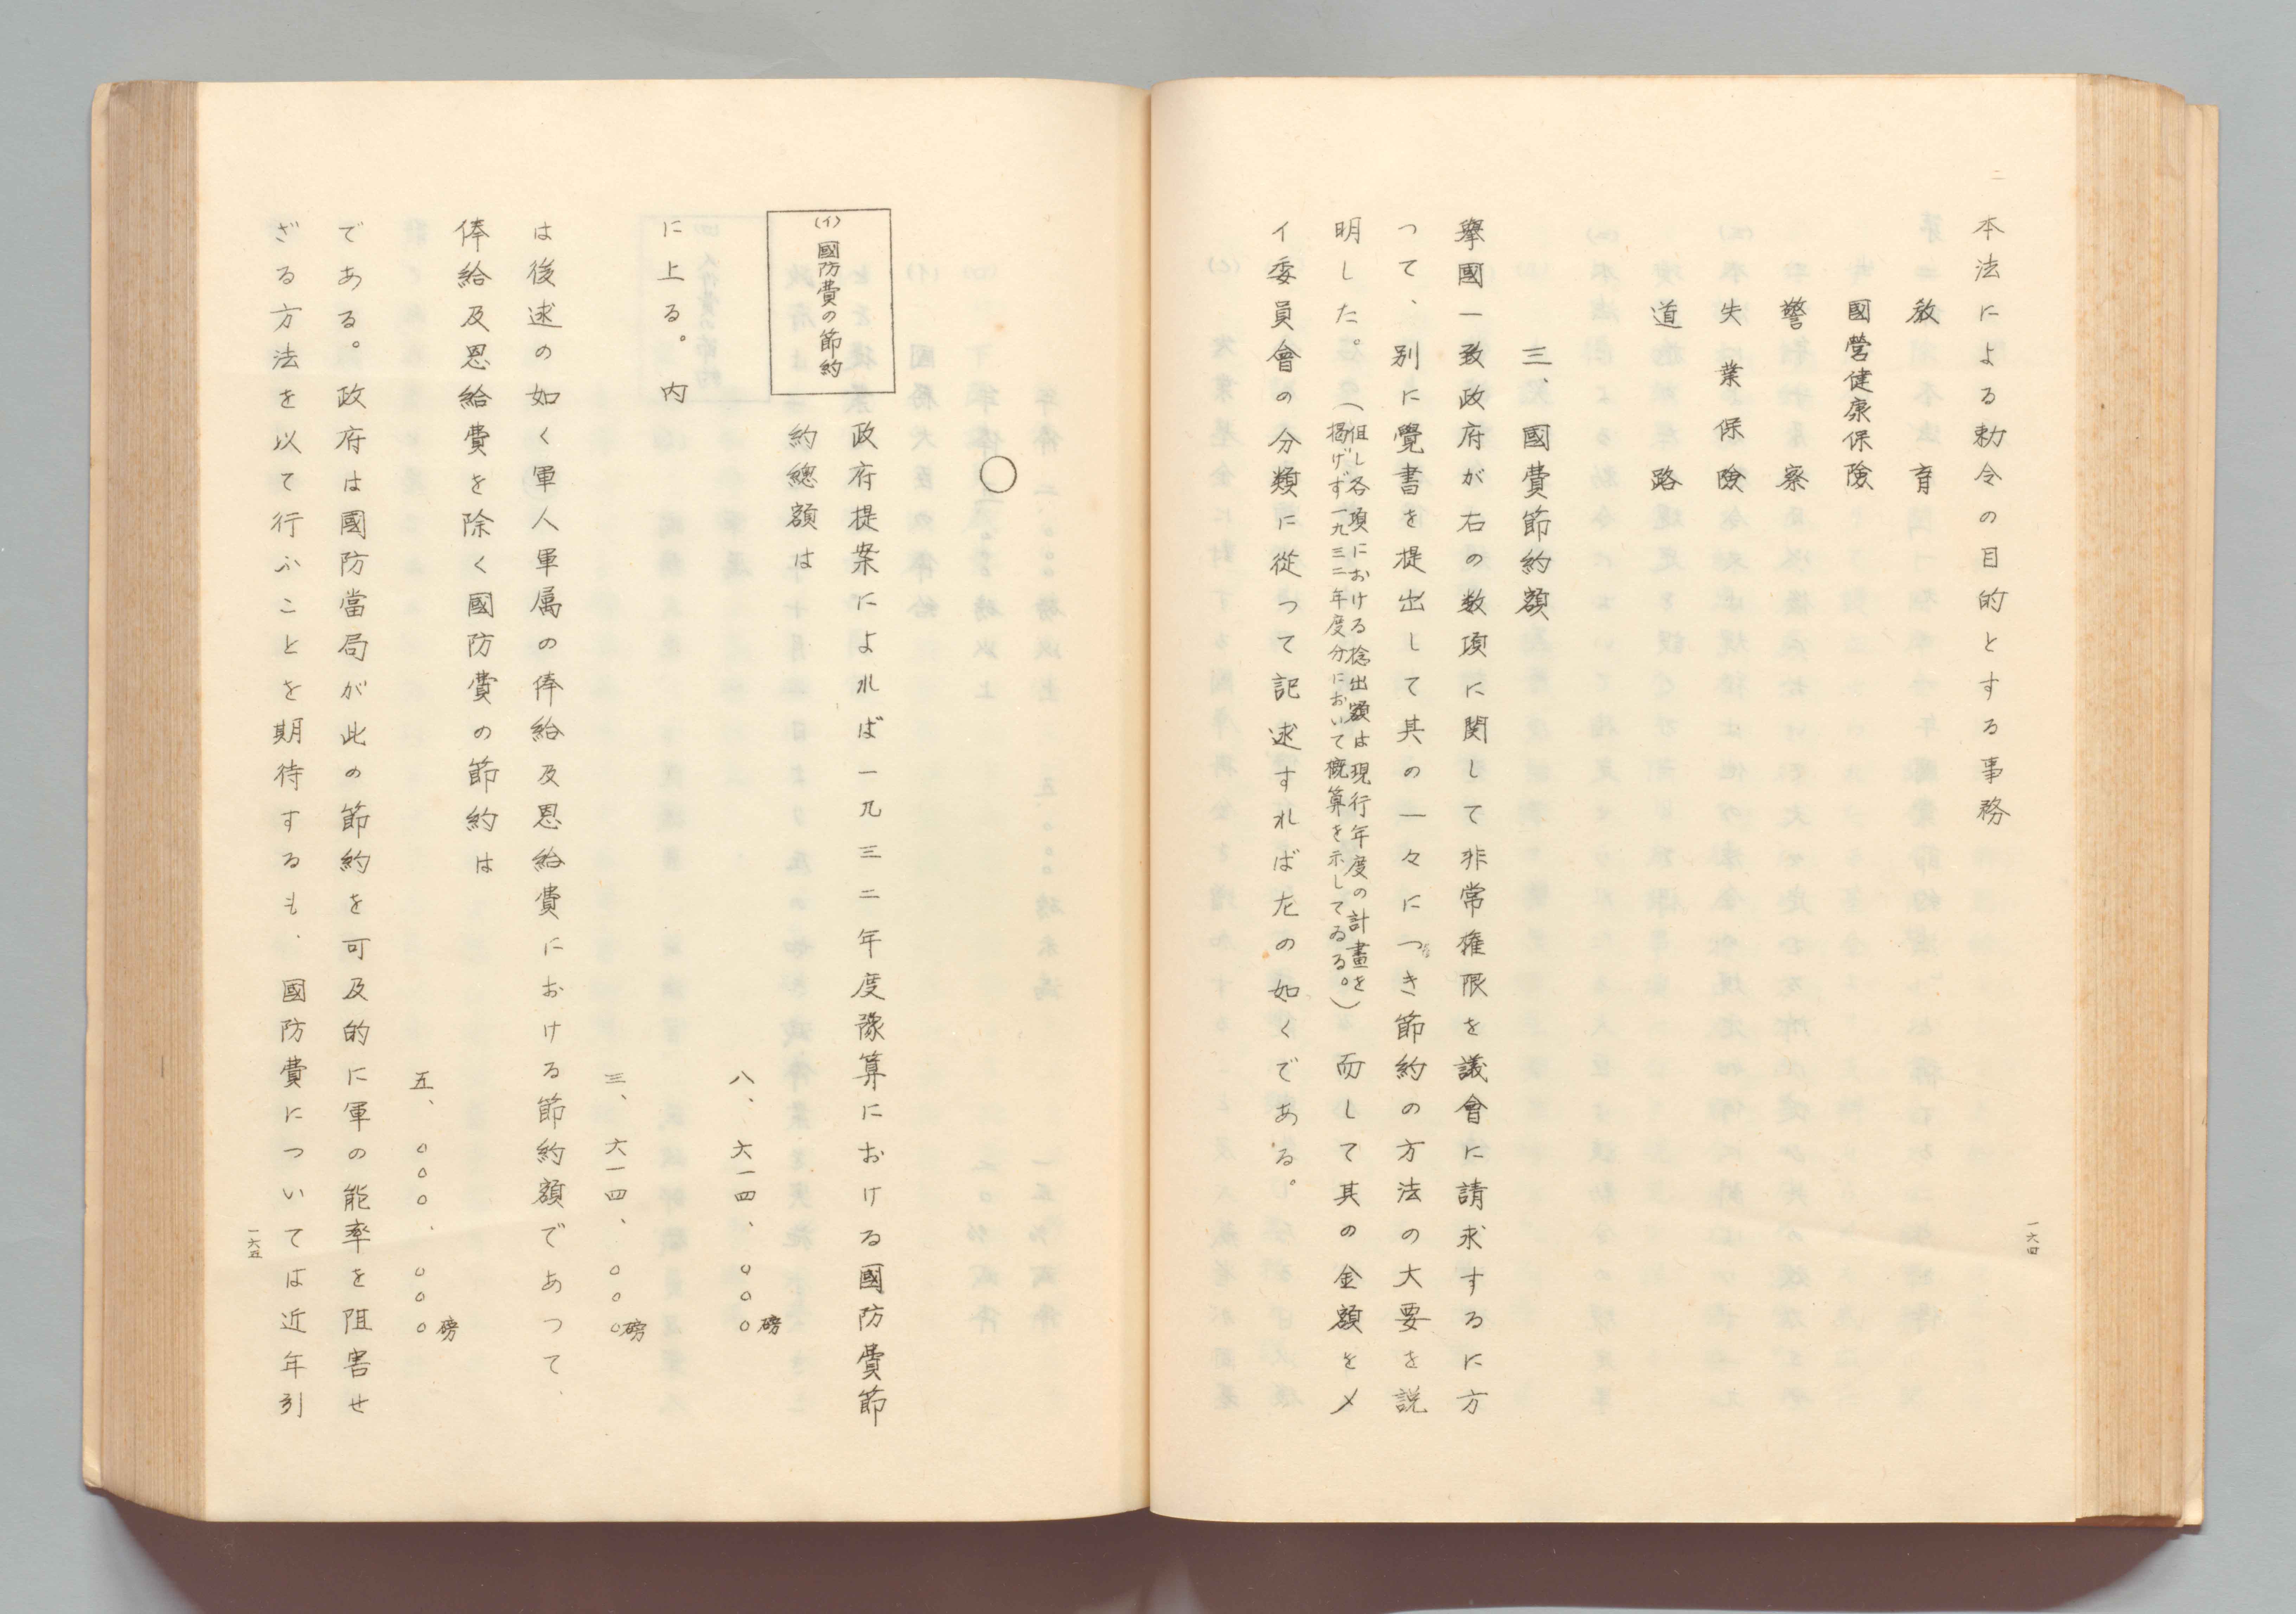 本法による勅令の目的とする事務
敎育
國營健康保險
警察
失業保險
道路
三、國費節約額
擧國一致政府が右の数項に関して非常権限を議會に請求するに方
つて、別に覺書を提出して其の一々につき節約の方法の大要を説
明した。(但し各項における捻出額は現行年度の計畫を
掲げず一九三二年度分において概算を示してゐる。)而して其の金額をメ
イ委員會の分類に從つて記述すれば左の如くである。
一六四
(イ)國防費の節約
政府提案によれば一九三二年度豫算における國防費節
約總額は
八、六一四、〇〇〇磅
に上る。内
三、六一四、〇〇〇磅
は後述の如く軍人軍属の俸給及恩給費における節約額であつて、
俸給及恩給費を除く國防費の節約は
五、〇〇〇、〇〇〇磅
である。政府は國防當局が此の節約を可及的に軍の能率を阻害せ
ざる方法を以て行ふことを期待するも、國防費については近年引
一六五